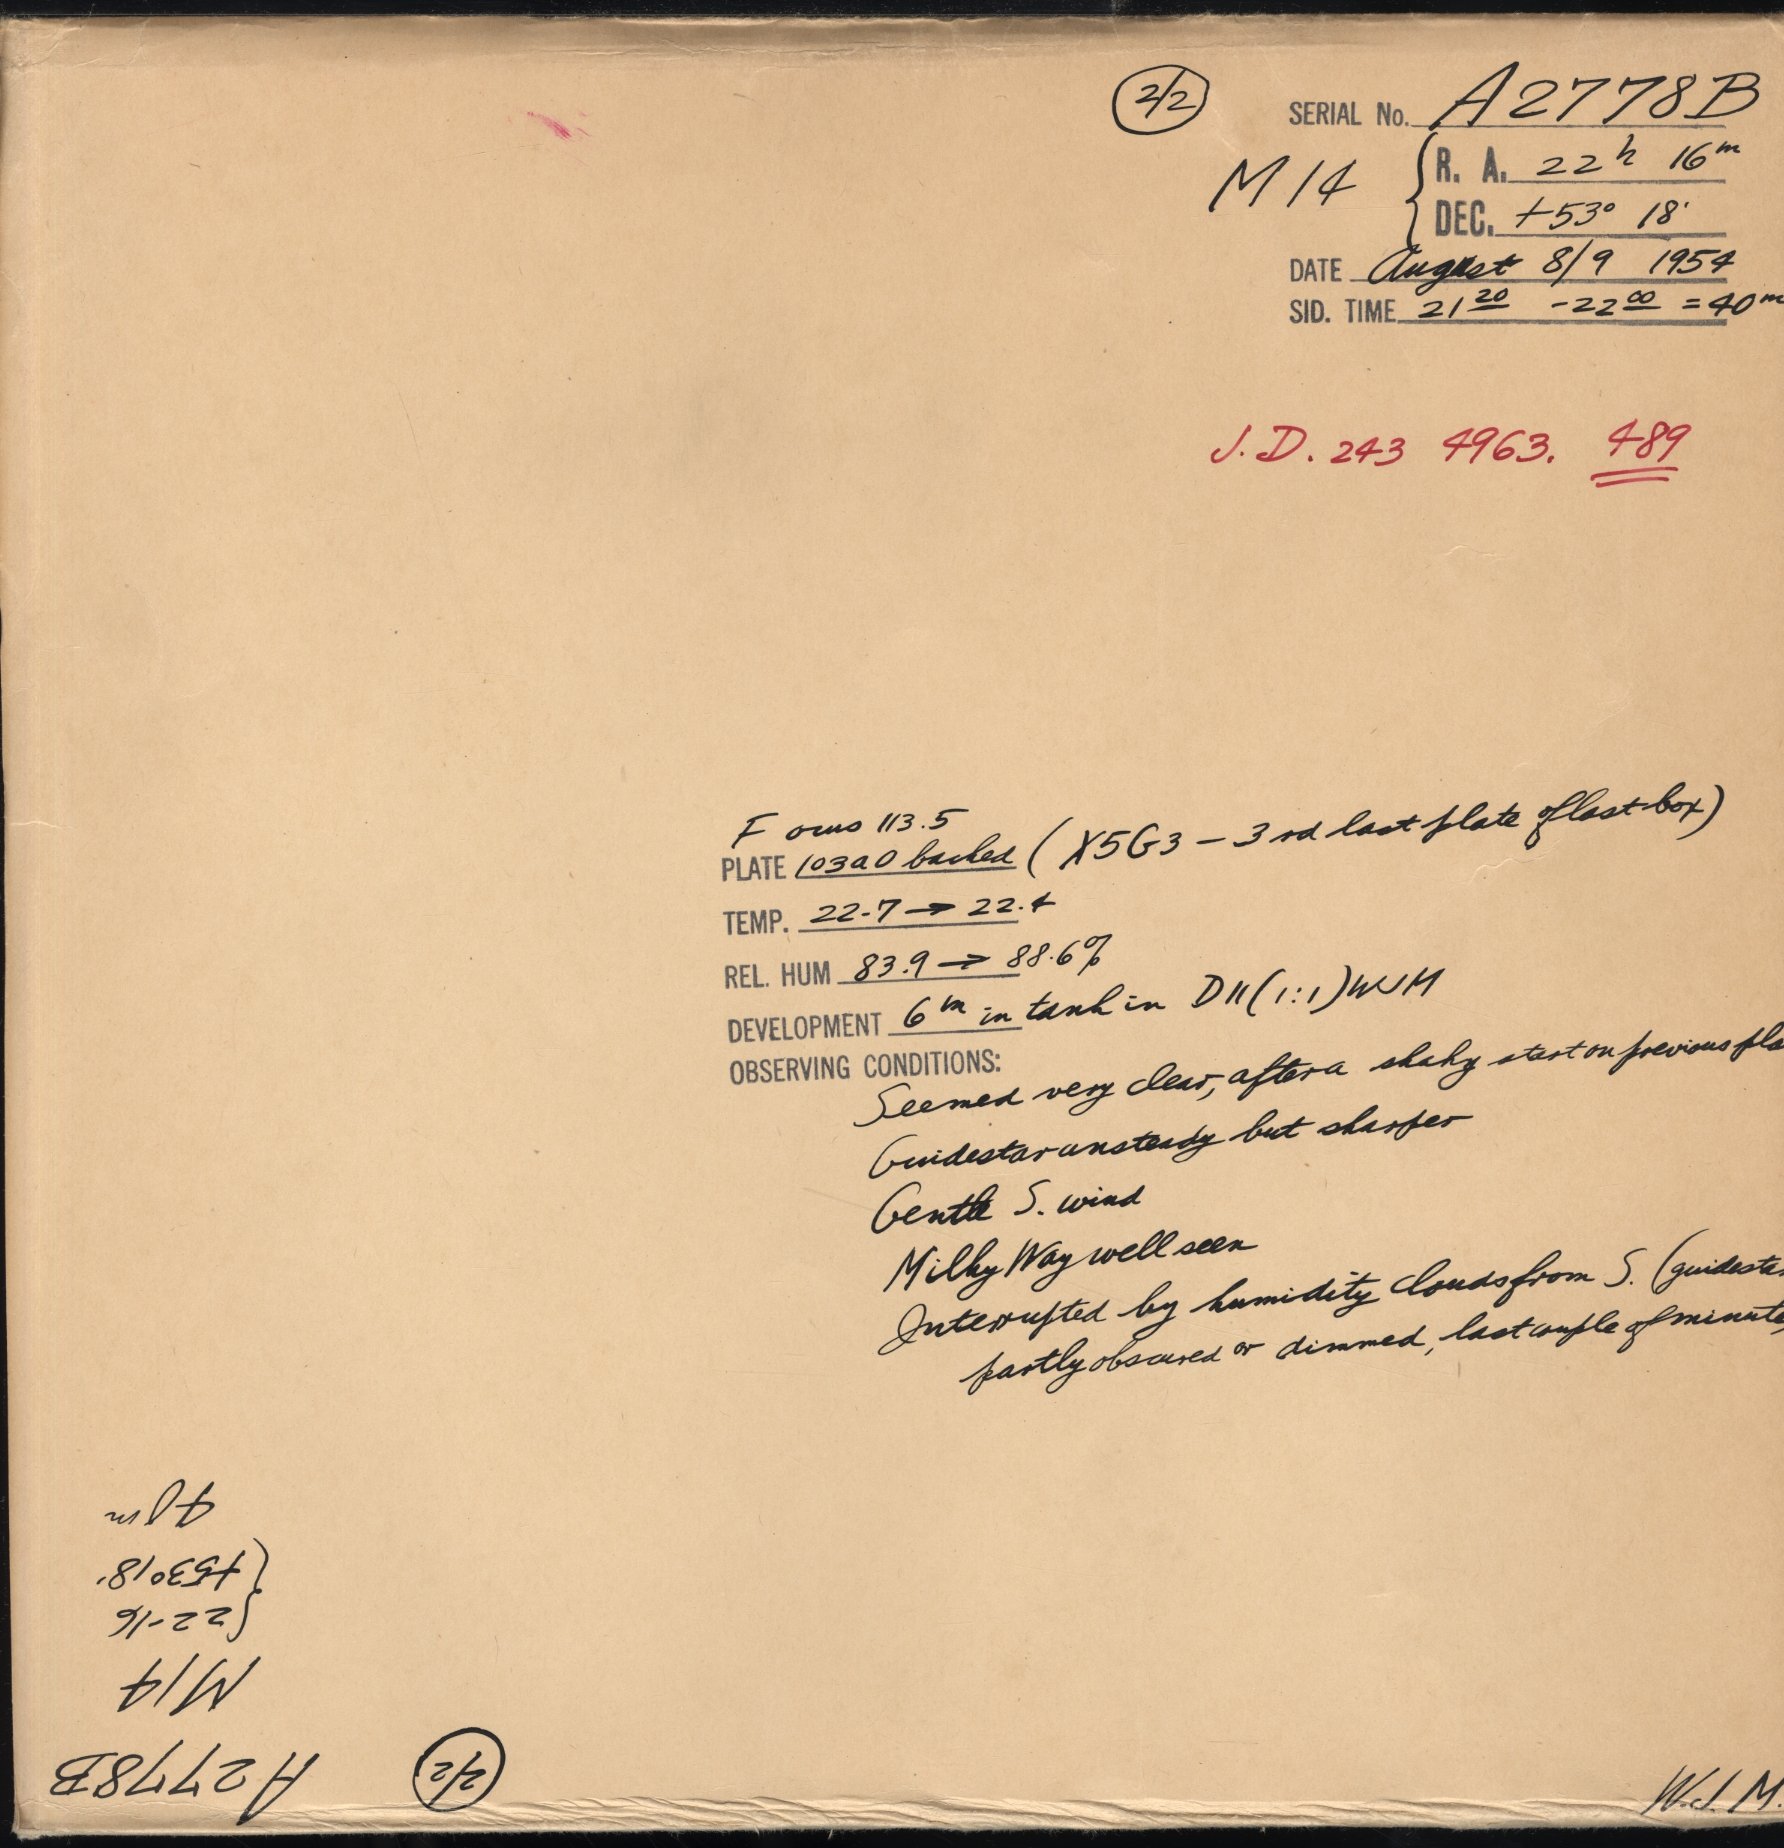 2/2
SERIAL No. A2778B
M 14
R. A. 22h 16m
DEC. +53° 18'
DATE August 8/9 1954
SID. TIME 21 20 - 22 00 = 40m
J.D. 243 4963. 489
Focus 113.5
PLATE 103aO backed (X5G3 - 3rd last plate of last box)
TEMP. 22.7 → 22.4
REL. HUM 83.9 → 88.6%
DEVELOPMENT 6m in tank in D11 (1:1) WJM
OBSERVING CONDITIONS:
Seemed very clear, after a shaky start on previous pla
Guidestar unsteady but sharper
Gentle S. wind
Milky Way well seen
Interrupted by humidity clouds from S. (guidesta
partly obscured or dimmed, last couple of minute
W.J.M.
A2778B
2/2
M14
22-16
+53°18'